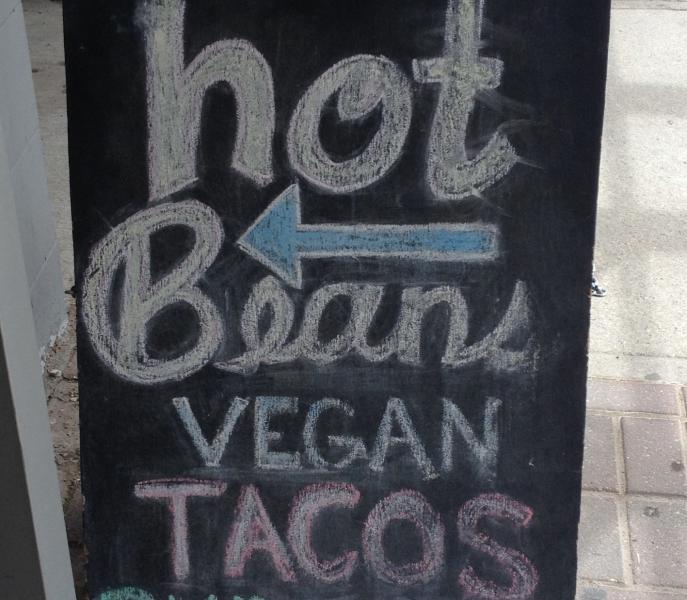 hot
Beans
VEGAN
TACOS